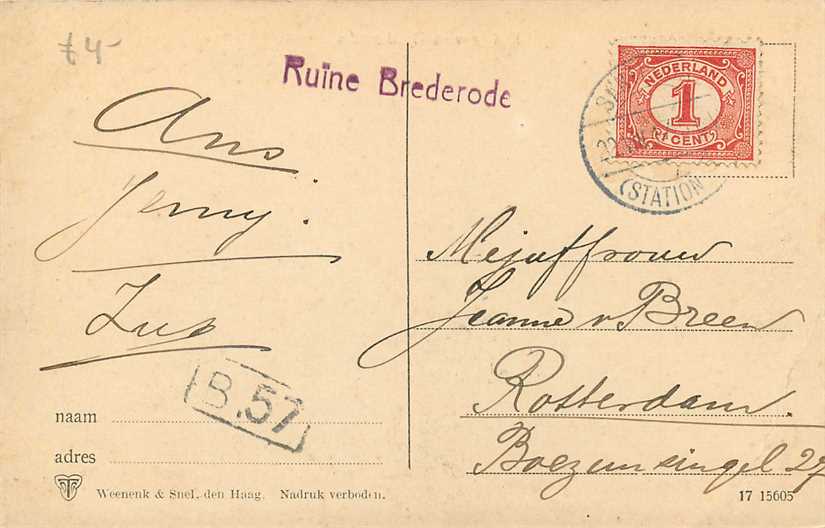 £ 4-
Ruïne Brederode
NEDERLAND
1
CENT
(STATION
Ans
Jenny.
Zus
Mejuffrouw
Jeanne v. Breen
Rotterdam.
Boezemsingel 27
B.57
naam
adres
Weenenk & Snel, den Haag. Nadruk verboden.
17 15605